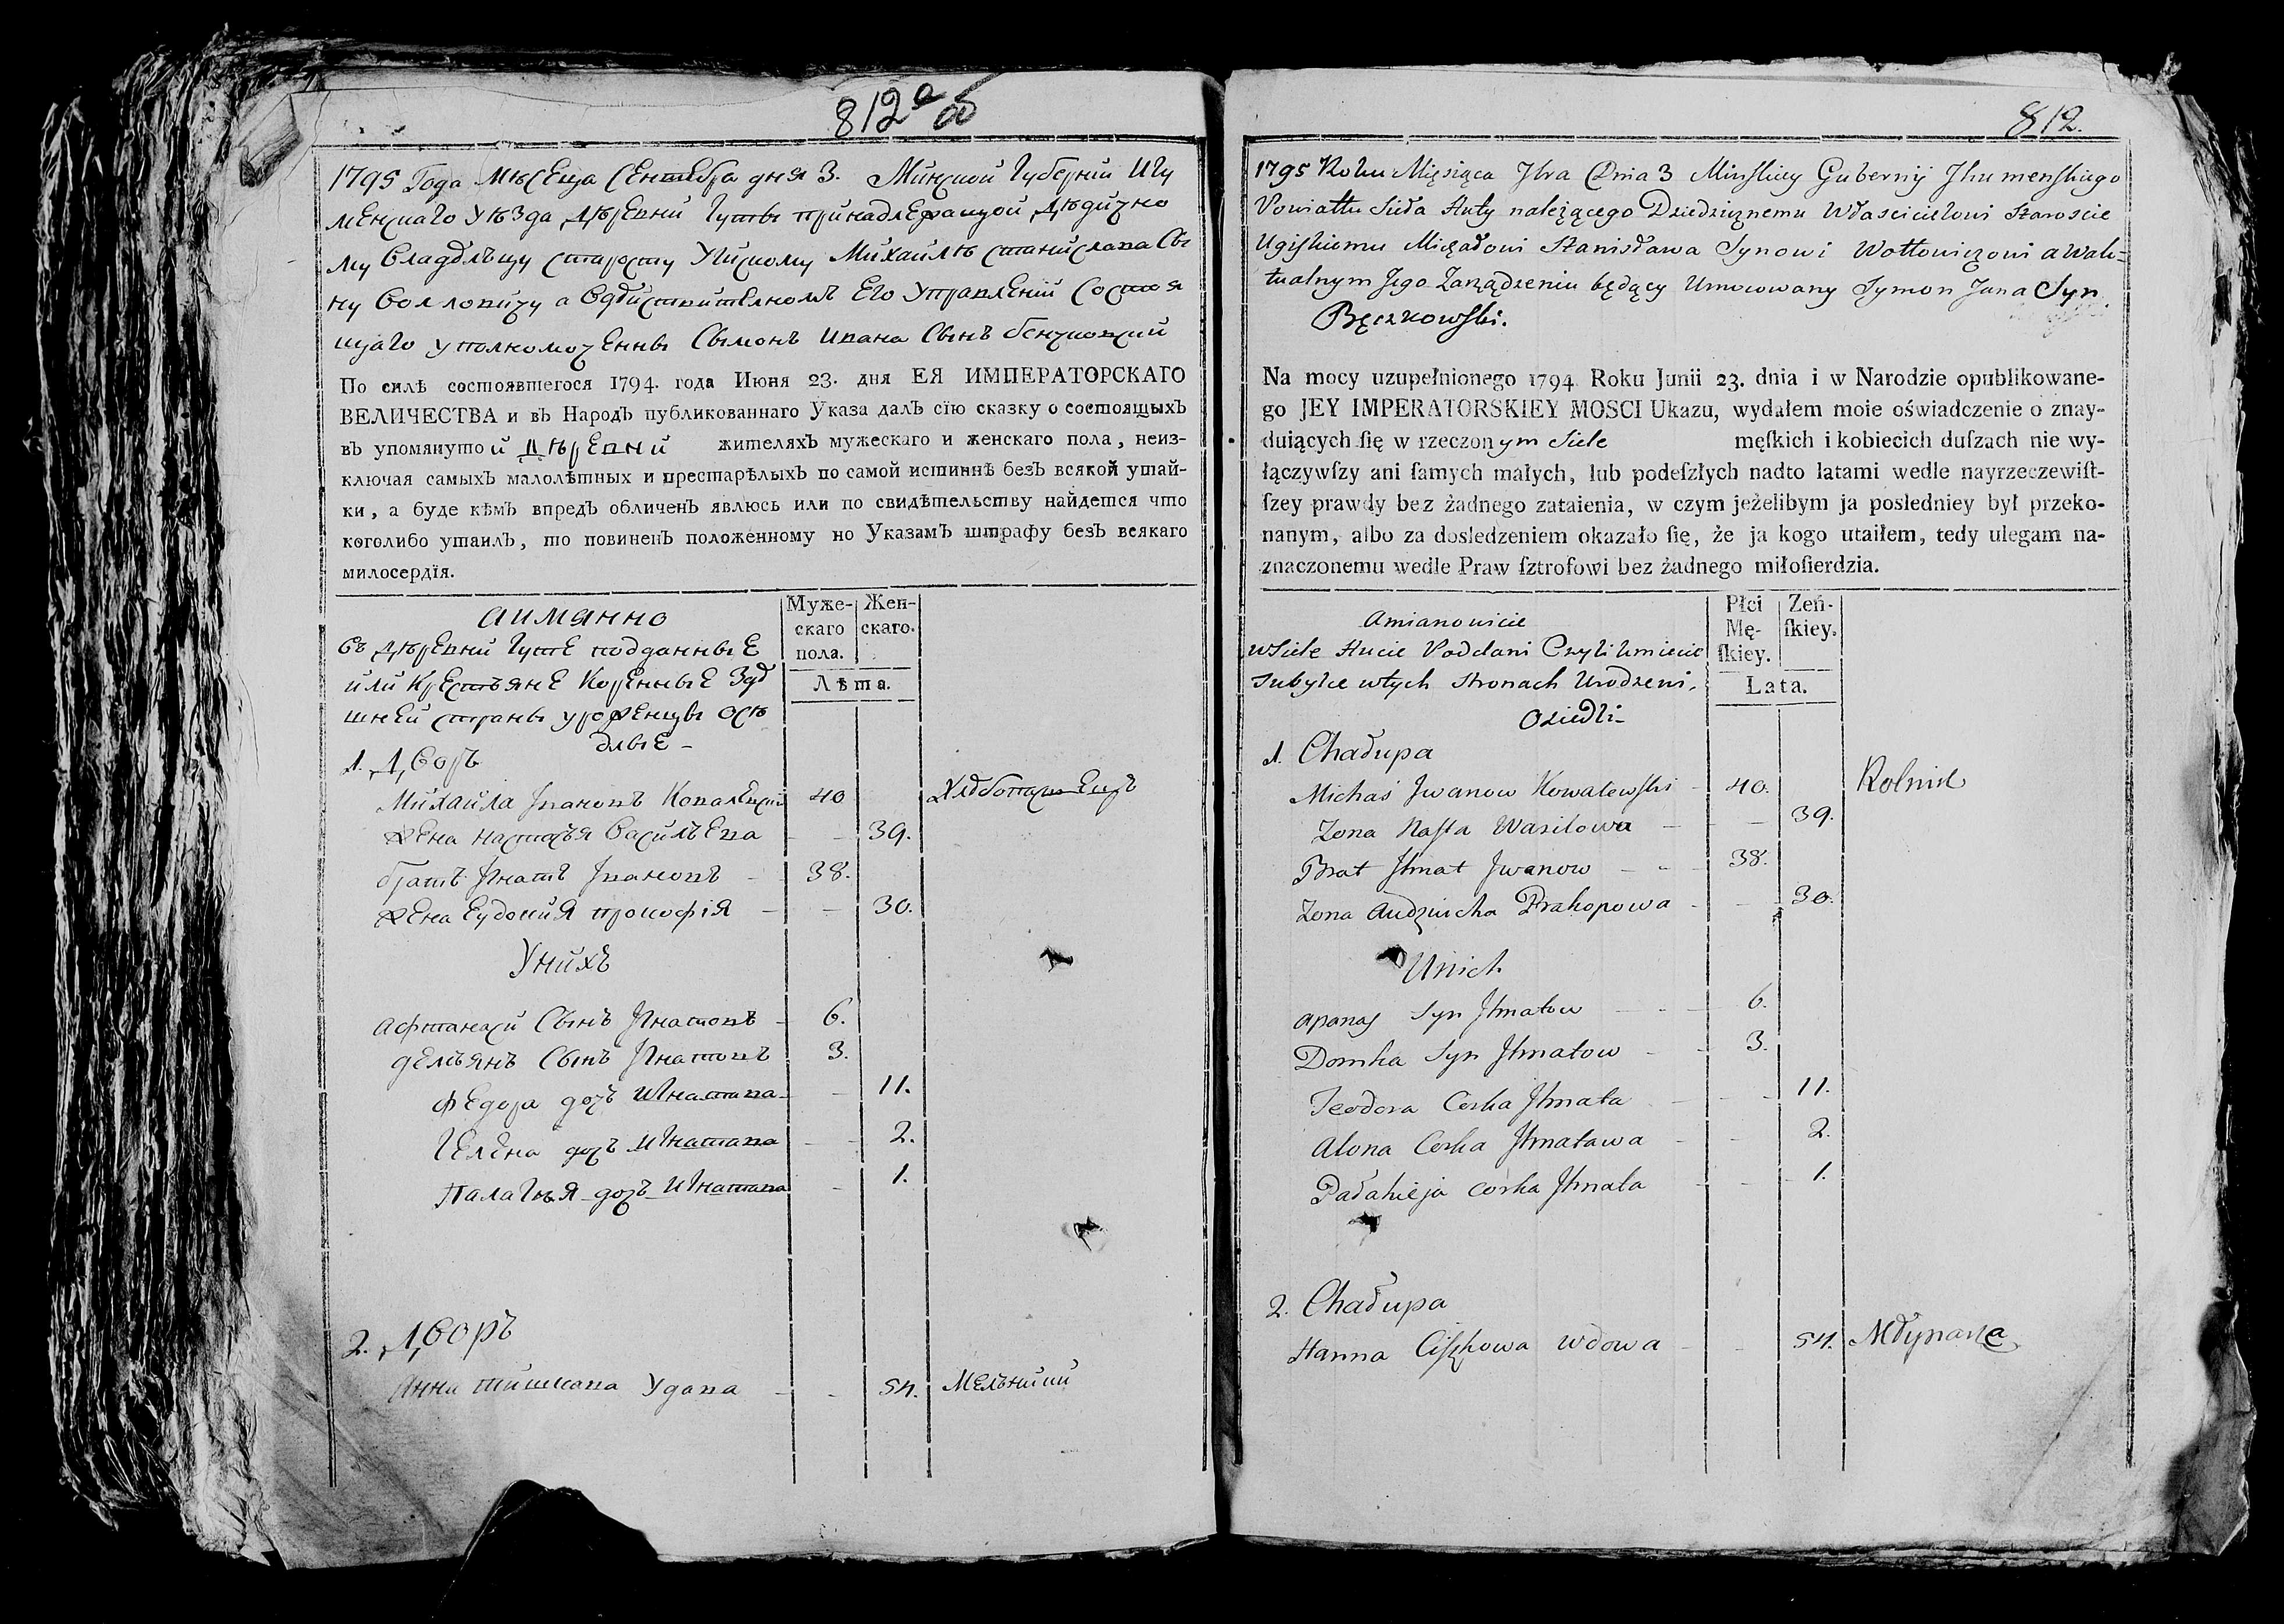 812 а об
1795 Года Мѣсеца Сентебра дня 3. Минской Губерніи Игу
менскаго Уѣзда Дѣревни Гуты принадлежащой Дѣдично
му Владѣлъцу старосту Угискому Михаилѣ станислава Сы
ну Волловичу а Вдѣиствителномъ Его Управленіи Состоя
щаго уполномоченны Сымонъ Ивана Сынъ бенчковский
По силѣ состоявшегося 1794. года Июня 23. дня ЕЯ ИМПЕРАТОРСКАГО
ВЕЛИЧЕСТВА и въ Народъ публикованнаго Указа далъ сїю сказку о состоящыхъ
въ упомянутой Дѣревни жителяхъ мужескаго и женскаго пола, неиз-
ключая самыхъ малолѣтныхъ и престарѣлыхъ по самой истиннѣ безъ всякой утай-
ки, а буде кѣмъ впредъ обличенъ явлюсь или по свидѣтельству найдется что
коголибо утаилъ, то повиненъ положенному по Указамъ штрафу безъ всякаго
милосердїя.
аимянно
Муже-
скаго
пола.
Жен-
скаго.
Лѣта.
Въ Дѣревни Гуте подданные
или Крестъяне Коренные Здѣ
шней страны уроженцы осѣ
длые -
1. Дворъ
Михаила Ивановъ Ковалевский 40 Хлѣбопашецъ
Жена настасъя Василъева - - 39.
братъ Игнатъ Ивановъ - - 38.
Жена Еудокия прокофія - - 30.
Унихъ
афтанаси Сынъ Игнатовъ - 6.
демъянъ Сынъ Игнатовъ 3.
Федора дочъ Игнатива - - 11.
Гелена дочъ Игнатава - - 2.
Палагѣя дочъ Игнатава - 1.
2. Дворъ
Анна тишкова Удава - - 54. Мелъники
812.
1795 Roku Miesiąca 7bra Dnia 3 Minskiey Gubernij Ihumenskiego
Powiattu Sieła Huty należącego Dziedzicznemu Właścicielowi Staroscie
Ugiskiemu Michałowi Stanisława Synowi Wołłowiczowi a Wak=
tualnym Jego Zarządzeniu będący Umocowany Symon Jana Syn
Bęczkowski.
Na mocy uzupełnionego 1794 Roku Junii 23. dnia i w Narodzie opublikowane-
go JEY IMPERATORSKIEY MOSCI Ukazu, wydałem moie oświadczenie o znay-
duiących ſię w rzeczonym Siele męſkich i kobiecich duſzach nie wy-
łączywſzy ani ſamych małych, lub podeſzłych nadto latami wedle nayrzeczewiſt-
ſzey prawdy bez żadnego zataienia, w czym jeżelibym ja posledniey był przeko-
nanym, albo za dosledzeniem okazało ſię, że ja kogo utaiłem, tedy ulegam na-
znaczonemu wedle Praw ſztrofowi bez żadnego miłoſierdzia.
Amianowicie
Płci
Mę-
ſkiey.
Zeń-
ſkiey.
Lata.
wSiele Hucie Poddani Czyli Umieic
Subylce wtych Stronach Urodzeni,
Osiedli
1. Chałupa
Michaś Jwanow Kowalewski - 40. Rolnik
Zona Nasta Wasilowa - - 39.
Brat Ihnat Jwanow - - 38.
Zona Audziucha Prakopowa - - 30.
Unich
Apanas Syn Ihnatow - - 6.
Domka Syn Ihnatow - - 3.
Teodora Corka Ihnata - - 11.
Alona Corka Ihnatawa - - 2.
Pałahieja corka Ihnata - - 1.
2. Chałupa
Hanna Ciszkowa wdowa - - 54. Młynarka